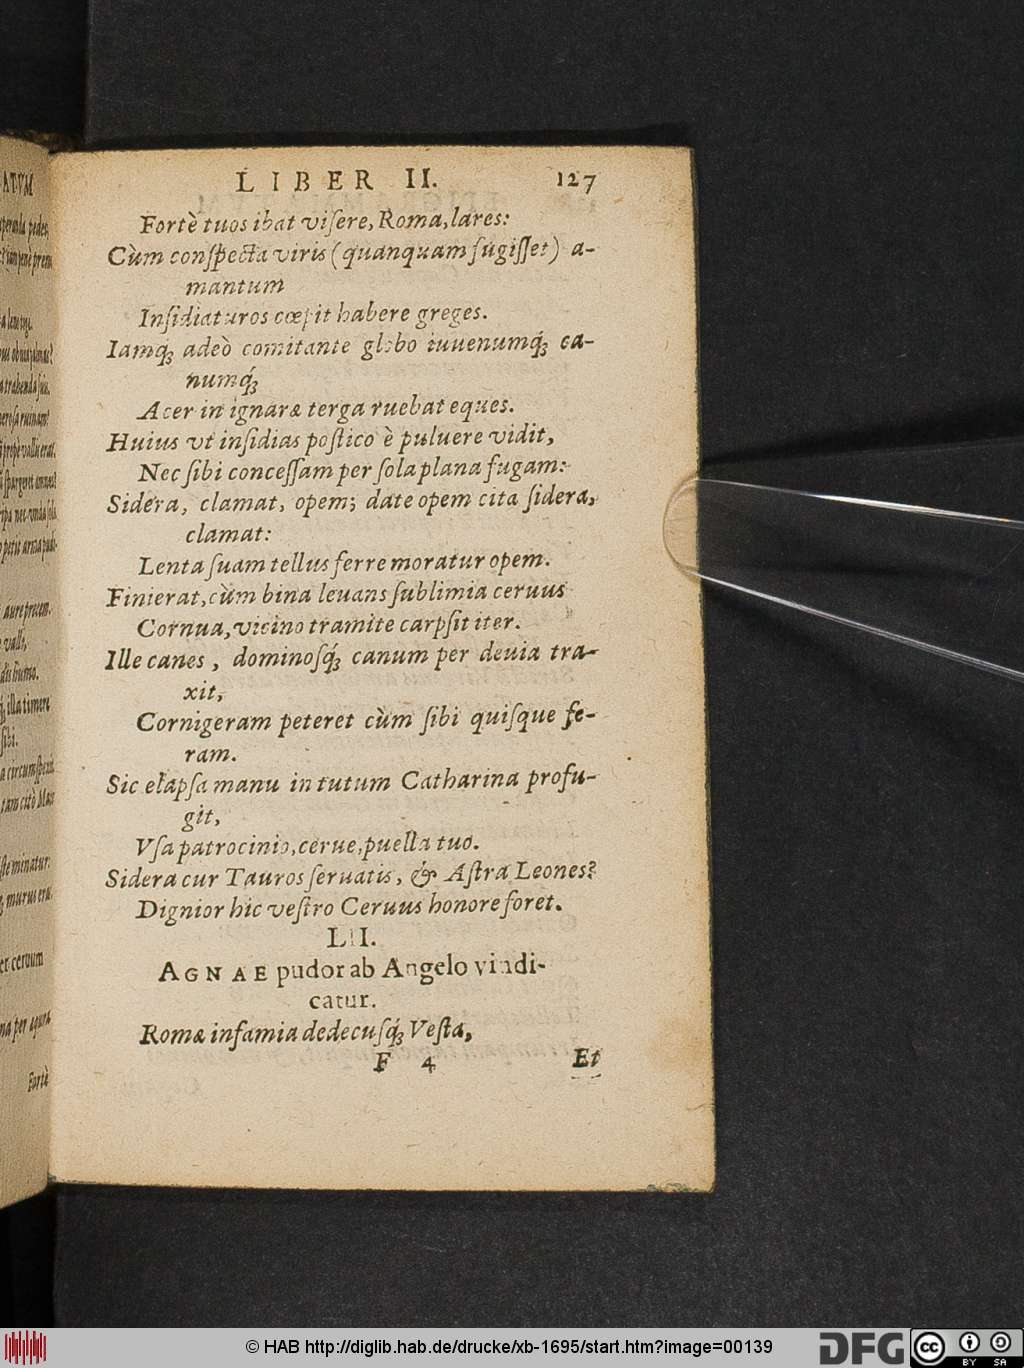 LIBER II. 127
Fortè tuos ibat viſere, Roma, lares:
Cùm conſpecta viris (quanquam fugiſſet) a-
mantum
Inſidiaturos cœpit habere greges.
Iamq́; adeò comitante globo iuuenumq́; ca-
numq́;
Acer in ignaræ terga ruebat eques.
Huius vt inſidias poſtico è puluere vidit,
Nec ſibi conceſſam per ſola plana fugam:
Sidera, clamat, opem; date opem cita ſidera,
clamat:
Lenta ſuam tellus ferre moratur opem.
Finierat, cùm bina leuans ſublimia ceruus
Cornua, vicino tramite carpſit iter.
Ille canes, dominoſq́; canum per deuia tra-
xit,
Cornigeram peteret cùm ſibi quiſque fe-
ram.
Sic elapſa manu in tutum Catharina profu-
git,
Vſa patrocinio, cerue, puella tuo.
Sidera cur Tauros ſeruatis, & Aſtra Leones?
Dignior hic veſtro Ceruus honore foret.
LII.
AGNAE pudor ab Angelo vindi-
catur.
Romæ infamia dedecuſq́; Veſta,
F 4 Et
ATVM
pedes,
vallis,
ſibi.
minatur:
ceruum
Fortè
© HAB http://diglib.hab.de/drucke/xb-1695/start.htm?image=00139
DFG
cc BY SA